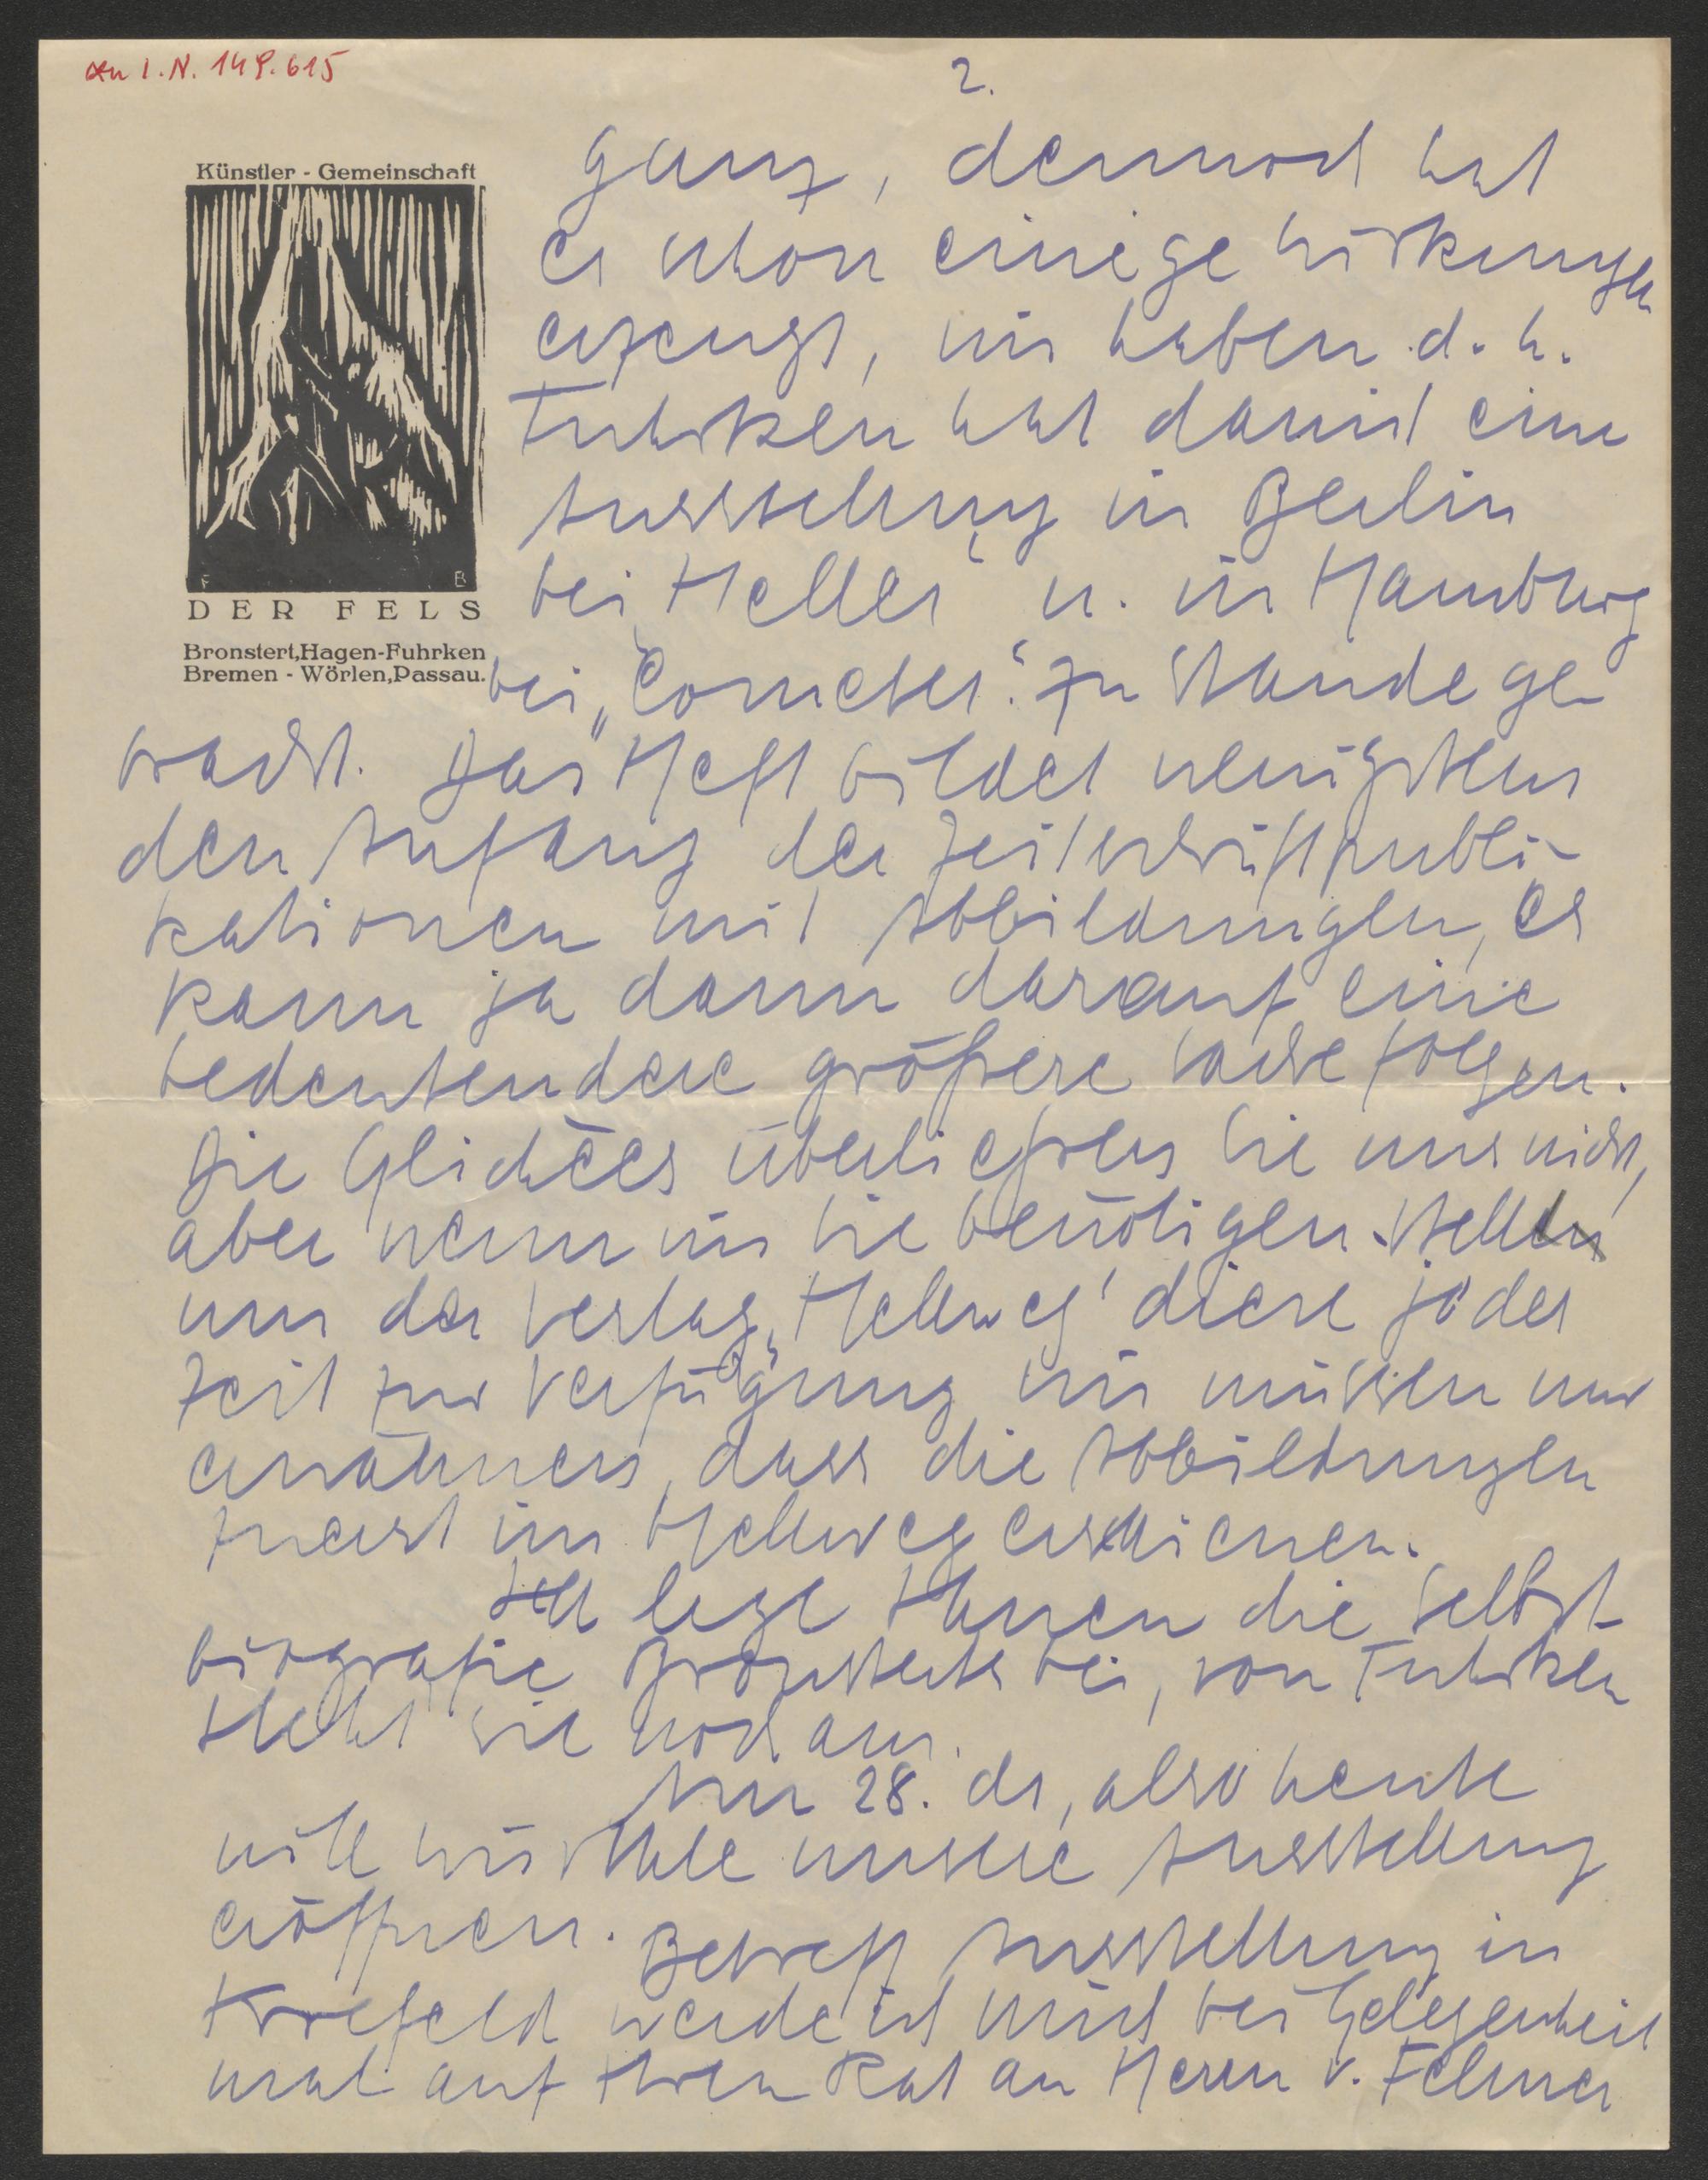 an I.N. 149.615
2.
Künstler - Gemeinschaft
F B
DER FELS
Bronstert, Hagen-Fuhrken
Bremen - Wörlen, Passau.
ganz, dennoch hat
es schon einige Wirkungen
erzeugt, wir haben d. h.
Fuhrken hat damit eine
Ausstellung in Berlin
bei „Heller“ u. in Hamburg
bei „Commeter“ zu Stande ge
bracht. Das Heft bildet wenigstens
den Anfang der Zeitschriftpubli-
kationen mit Abbildungen, es
kann ja dann darauf eine
bedeutendere größere Sache folgen.
Die Glichées überließen Sie uns nicht,
aber wenn wir sie benötigen stellt
uns der Verlag „Hellweg“ diese jeder
Zeit zur Verfügung wir müssen nur
erwähnen, dass die Abbildungen
zuerst im Hellweg erschienen.
Ich lege Ihnen die Selbst-
biografie Bronsterts bei, von Fuhrken
steht sie noch aus.
Am 28. ds, also heute
will unsere Ausstellung
eröffnen. Betreff Ausstellung in
Krefeld werde ich mich bei Gelegenheit
mal auf Ihren Rat an Herrn v.